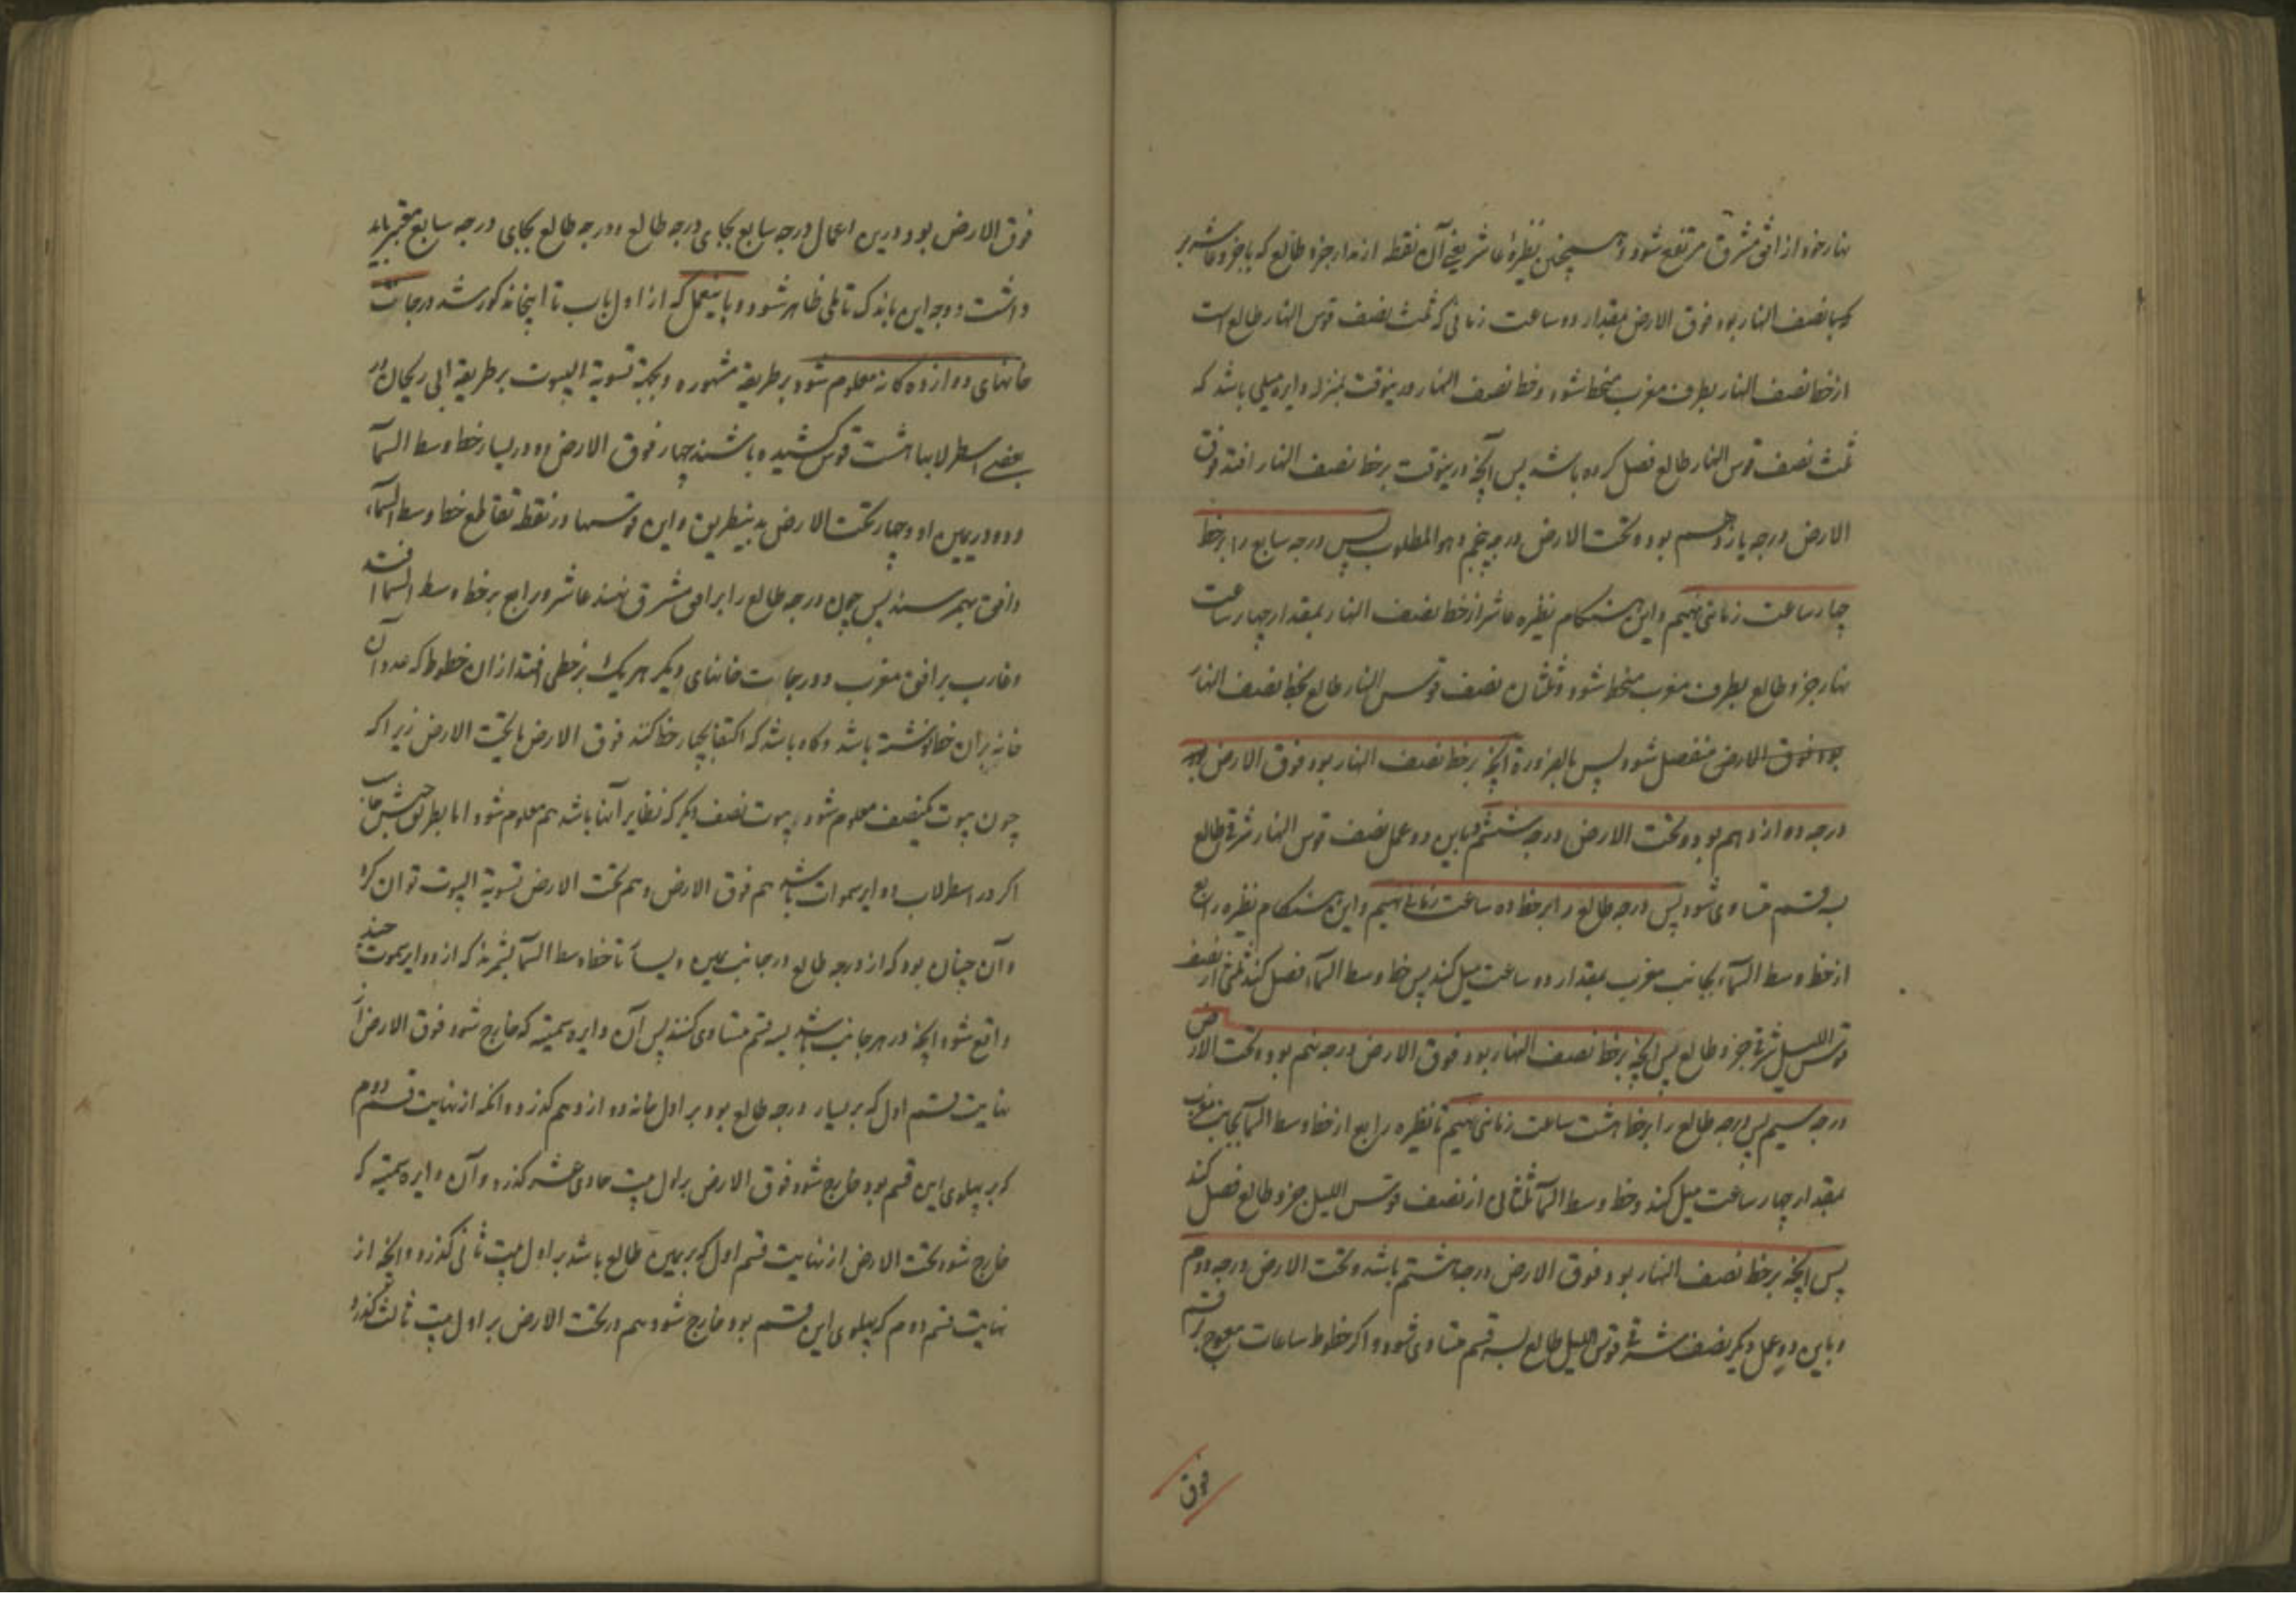 نهار خود از افق مشرق مرتفع شود و همچنین نظیرهٔ عاشر یعنی آن نقطه از مدار جزو طالع که با جزو عاشر بر
نصف النهار بود فوق الارض بمقدار دو ساعت زمانی که ثلث نصف قوس النهار طالع است
از خط نصف النهار بطرف مغرب منحط شود و خط نصف النهار درینوقت بمنزله دایره میلی باشد که
ثلث نصف قوس النهار طالع فصل کرده باشد پس آنچه درینوقت بر خط نصف النهار افتد فوق
الارض درجه یازدهم بود و تحت الارض درجه پنجم و هو المطلوب پس درجه سابع را بر خط
چهار ساعت زمانی نهیم و این هنگام نظیره عاشر از خط نصف النهار بمقدار چهار ساعت
نهار جزو طالع بطرف مغرب منحط شود و ثلثان نصف قوس النهار طالع بخط نصف النهار
بود فوق الارض منفصل شود پس بالضرورة آنچه بر خط نصف النهار بود فوق الارض
درجه دوازدهم بود و تحت الارض درجه ششم و باین دو عمل نصف قوس النهار شرقی طالع
بسه قسم متساوی شود پس درجه طالع را بر خط ده ساعت زمانی نهیم و این هنگام نظیره رابع
از خط وسط السمآء بجانب مغرب بمقدار دو ساعت میل کند پس خط وسط السمآء فصل کند ثلثی از نصف
قوس اللیل شرقی جزو طالع پس آنچه بر خط نصف النهار بود فوق الارض درجه نهم بود و تحت الارض
درجه سیم پس درجه طالع را بر خط هشت ساعت زمانی نهیم تا نظیره رابع از خط وسط السمآ بجانب مغرب
بمقدار چهار ساعت میل کند و خط وسط السمآ ثلثان از نصف قوس اللیل جزو طالع فصل کند
پس آنچه بر خط نصف النهار بود فوق الارض درجه هشتم باشد و تحت الارض درجه دوم
و باین دو عمل دیگر نصف شرقی قوس اللیل طالع بسه قسم متساوی شود و اگر خطوط ساعات معوج
فوق
فوق الارض بود و درین اعمال درجه سابع بجای درجه طالع و درجه طالع بجای درجه سابع معتبر باید
داشت و وجه این باندک تاملی ظاهر شود و باینعمل که از اول باب تا اینجا مذکور شد درجات
خانهای دوازده کانه معلوم شود بر طریقه مشهوره و بجهة تسویة البیوت بر طریقه ابی ریحان در
بعضی اسطرلابها هشت قوس کشیده باشند چهار فوق الارض دو در یسار خط وسط السمآ
و دو در یمین او و چهار تحت الارض بدینطریق و این قوسها در نقطه تقاطع خط وسط السمآء
و افق بهم رسند پس چون درجه طالع را بر افق مشرق نهند عاشر و رابع بر خط وسط السمآ افتد
و غارب بر افق مغرب و درجات خانهای دیگر هر یک بر خطی افتد از ان خطوط که عدد آن
خانه بران خط نوشته باشد و کاه باشد که اکتفا بچهار خط کنند فوق الارض یا تحت الارض زیرا که
چون بیوت یکنصف معلوم شود بیوت نصف دیگر که نظایر آنها باشد هم معلوم شود اما بطریق
اگر در اسطرلاب دوایر سموات باشد هم فوق الارض و هم تحت الارض تسویة البیوت توان کرد
و آن چنان بود که از درجه طالع در جانب یمین و یسار تا خط وسط السمآ بشمرند که از دوایر سموت چند
واقع شود آنچه در هر جانب باشد بسه قسم متساوی کنند پس آن دایره سمتیه که خارج شود فوق الارض از
نهایت قسم اول که بر یسار درجه طالع بود بر اول خانه دوازدهم گذرد و آنکه از نهایت قسم دوم
که بر پهلوی این قسم بود خارج شود فوق الارض بر اول بیت حادی عشر گذرد و آن دایره سمتیه که
خارج شود تحت الارض از نهایت قسم اول که بر یمین طالع باشد بر اول بیت ثانی گذرد و آنچه از
نهایت قسم دوم که پهلوی این قسم بود خارج شود هم در تحت الارض بر اول بیت ثالث گذرد